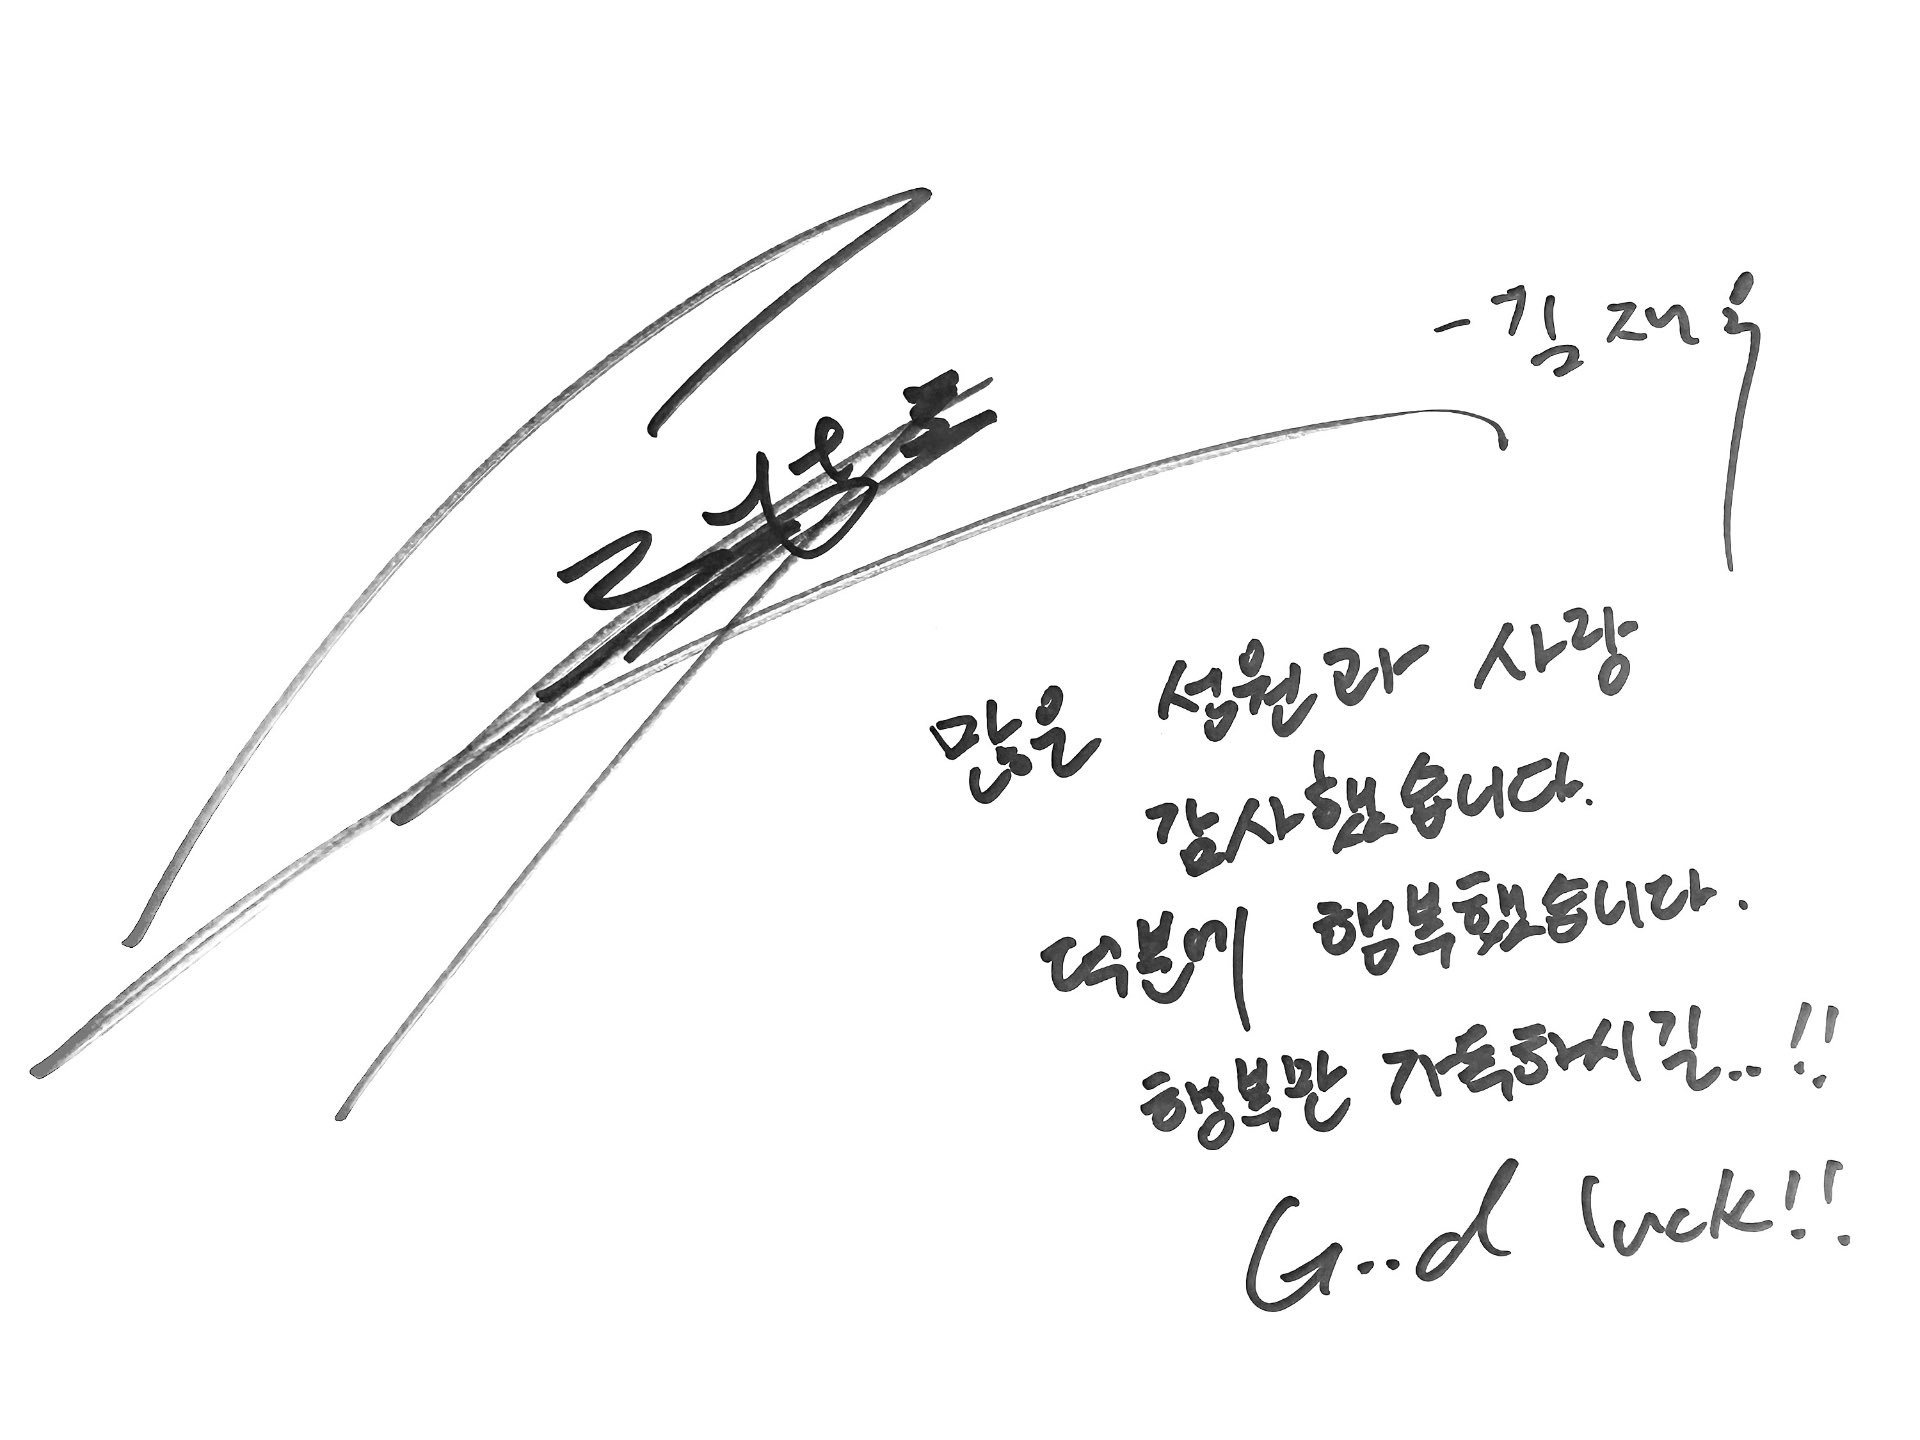 -김재우
많은 성원과 사랑
감사했습니다.
덕분에 행복했습니다.
행복만 가득하시길..!!
G..d luck!!